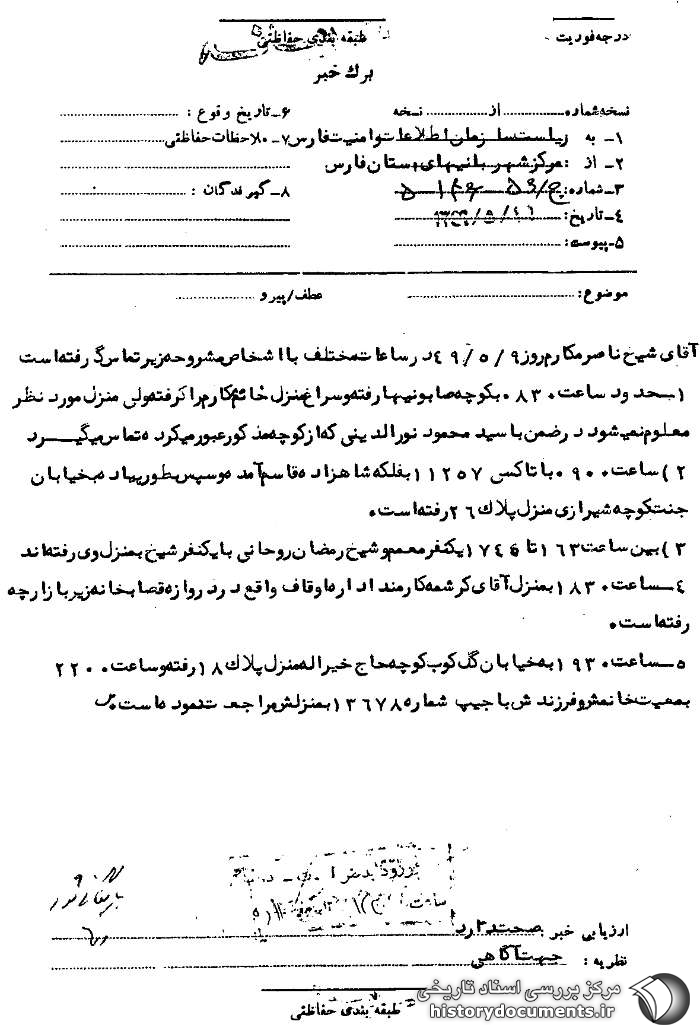 درجه فوریت ـ طبقه بندی حفاظتی
برك خبر
نسخه شماره.......... از.......... نسخه ٦ـ تاریخ وقوع :
١ـ به ریاست سازمان اطلاعات و امنیت فارس ٧ـ ملاحظات حفاظتی
٢ـ از : مرکز شهربانیهای استان فارس
٣ـ شماره: ٨ـ گیرندگان :
٤ـ تاریخ:
٥ـ پیوست:
موضوع: عطف/پیرو
آقای شیخ ناصر مکارم روز ٩/٥/٤٩ در ساعات مختلف با اشخاص مشروحه زیر تماس گرفته است
١ـ حدود ساعت ٠٨٣٠ بکوچه صابونیها رفته و سراغ منزل خانم کارم را گرفته ولی منزل مورد نظر
معلوم نمیشود در ضمن با سید محمود نورالدینی که از کوچه مذکور عبور میکرده تماس میگیرد
٢) ساعت ٠٩٠٠ با تاکسی ١١٢٥٧ بفلکه شاهزاده قاسم آمده و سپس بطور پیاده بخیابان
جنت کوچه شیرازی منزل پلاك ٢٦ رفته است.
٣) بین ساعت ١٦٣٠ تا ١٧٤٥ یکنفر معمم و شیخ رمضان روحانی با یکنفر شیخ بمنزل وی رفته اند
٤ـ ساعت ١٨٣٠ بمنزل آقای کرشمه کارمند اداره اوقاف واقع در دروازه قصابخانه زیر بازارچه
رفته است.
٥ـ ساعت ١٩٣٠ به خیابان گل کوب کوچه حاج خیراله منزل پلاك ١٨ رفته و ساعت ٢٢٠٠
بمعیت خانمش و فرزندش با جیپ شماره ١٣٦٧٨ بمنزلش مراجعت نموده است.
ارزیابی خبر : صحت دارد
نظریه : جهت آگاهی
طبقه بندی حفاظتی
مرکز بررسی اسناد تاریخی
historydocuments.ir